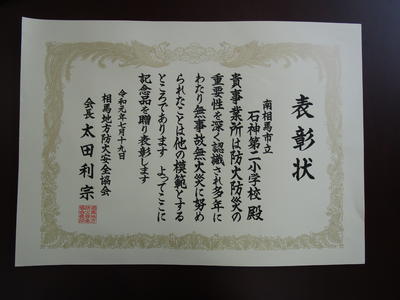 表彰状
南相馬市立
石神第二小学校 殿
貴事業所は防火防災の
重要性を深く認識され多年に
わたり無事故無火災に努め
られたことは他の模範とする
ところであります よってここに
記念品を贈り表彰します
令和元年七月十九日
相馬地方防火安全協会
会長 太田利宗